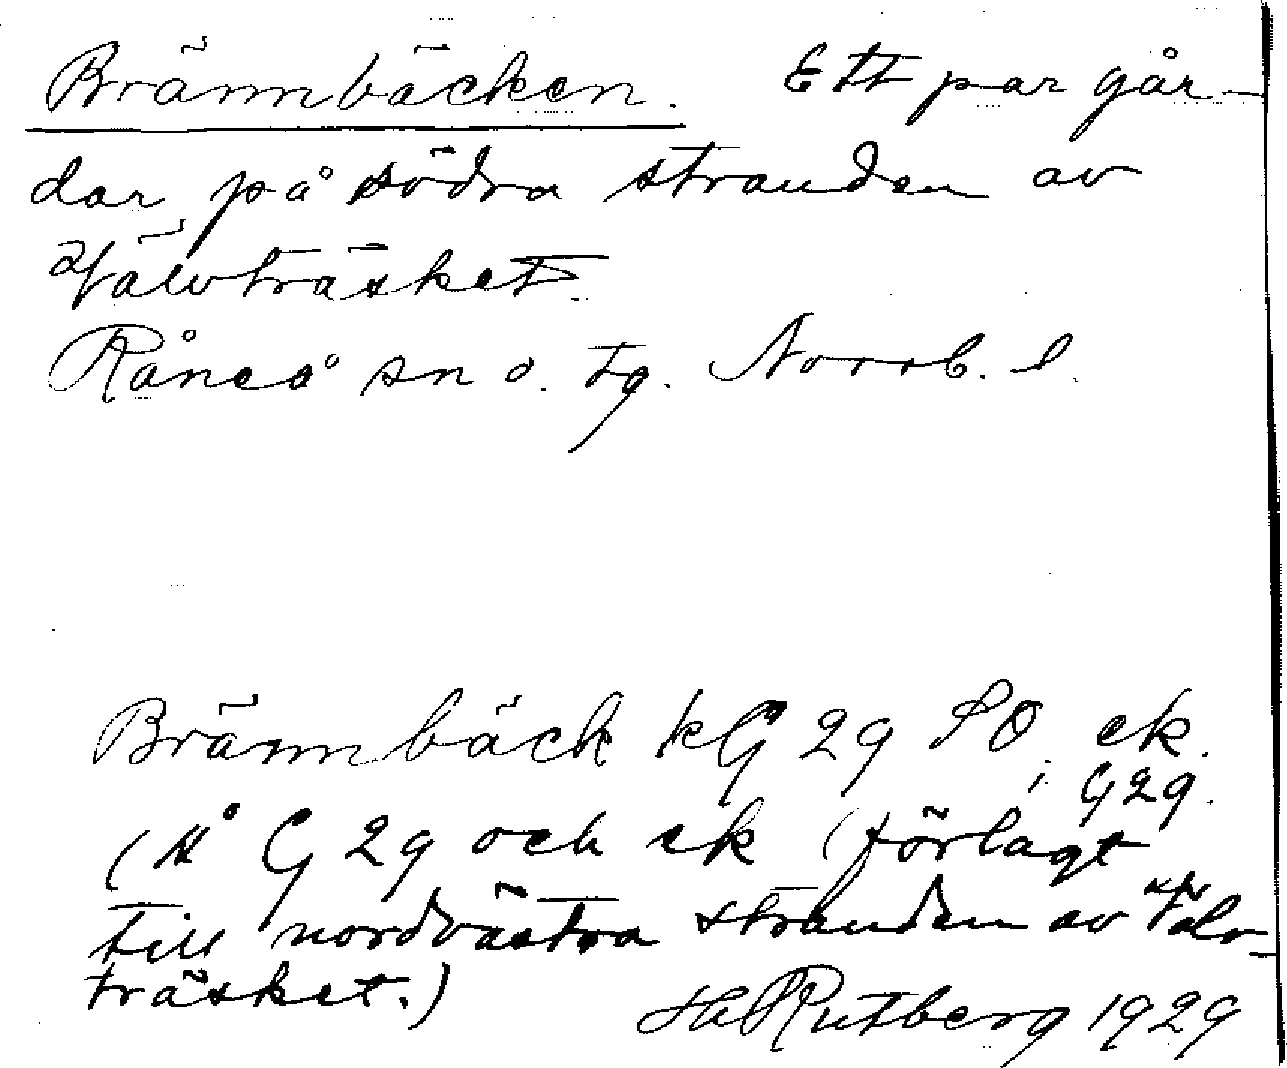 Brännbäcken. Ett par går-
dar på södra stranden av
Välvträsket.
Råneå sn o. tg. Norrb. l.
Brännbäck kG 29 SO, ek.
G29.
(så G 29 och ek (förlagt
till nordvästra stranden av Välv-
träsket.)
H Rutberg 1929